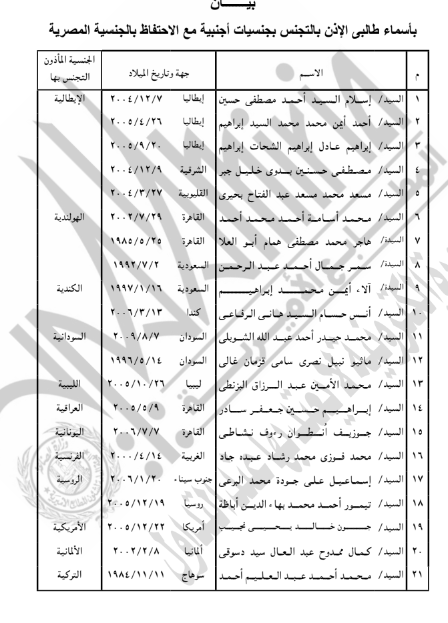 بيـــــان
بأسماء طالبى الإذن بالتجنس بجنسيات أجنبية مع الاحتفاظ بالجنسية المصرية
م الاســـم جهة وتاريخ الميلاد الجنسية المأذون التجنس بها
١ السيد/ إسلام السيد أحمد مصطفى حسين إيطاليا ٢٠٠٤/١٢/٧ الإيطالية
٢ السيد/ أحمد أيمن محمد محمد السيد إبراهيم إيطاليا ٢٠٠٥/٤/٢٦
٣ السيد/ إبراهيم عادل إبراهيم الشحات إبراهيم إيطاليا ٢٠٠٥/٩/٢٠
٤ السيد/ مصطفى حسنين بدوى خليل جبر الشرقية ٢٠٠٤/١٢/٩
٥ السيد/ مسعد محمد مسعد عبد الفتاح بحيرى القليوبية ٢٠٠٤/٣/٢٧
٦ السيد/ محمد أسامة أحمد محمد أحمد القاهرة ٢٠٠٢/٧/٢٩ الهولندية
٧ السيدة/ هاجر محمد مصطفى همام أبو العلا القاهرة ١٩٨٥/٥/٢٥
٨ السيدة/ سمر جمال أحمد عبد الرحمن السعودية ١٩٩٢/٧/٢
٩ السيدة/ آلاء أيمن محمد إبراهيم السعودية ١٩٩٧/١/١٦ الكندية
١٠ السيد/ أنس حسام السيد هانى الرفاعى كندا ٢٠٠٦/٣/١٣
١١ السيد/ محمد حيدر أحمد عبد الله الشويلى السودان ٢٠٠٩/٨/٧ السودانية
١٢ السيد/ ماثيو نبيل نصرى سامى قزمان غالى السودان ١٩٩٦/٥/١٤
١٣ السيد/ محمد الأمين عبد الرزاق البزنطى ليبيا ٢٠٠٥/١٠/٢٦ الليبية
١٤ السيد/ إبراهيم حسين جعفر سادر القاهرة ٢٠٠٥/٥/٩ العراقية
١٥ السيد/ جوزيف أنطوان رءوف نشاطى القاهرة ٢٠٠٦/٧/٧ اليونانية
١٦ السيد/ محمد فوزى محمد رشاد عبده جاد الغربية ٢٠٠٠/٤/١٤ الفرنسية
١٧ السيد/ إسماعيل على جودة محمد البرعى جنوب سيناء ٢٠٠٦/١/٢٠ الروسية
١٨ السيد/ تيمور أحمد محمد بهاء الدين أباظة روسيا ٢٠٠٥/١٢/١٩
١٩ السيد/ جــون خالــد يحيــى نجيب أمريكا ٢٠٠٥/١٢/٢٢ الأمريكية
٢٠ السيد/ كمال ممدوح عبد العال سيد دسوقى ألمانيا ٢٠٠٢/٢/٨ الألمانية
٢١ السيد/ محمد أحمد عبد العليم أحمد سوهاج ١٩٨٤/١١/١١ التركية